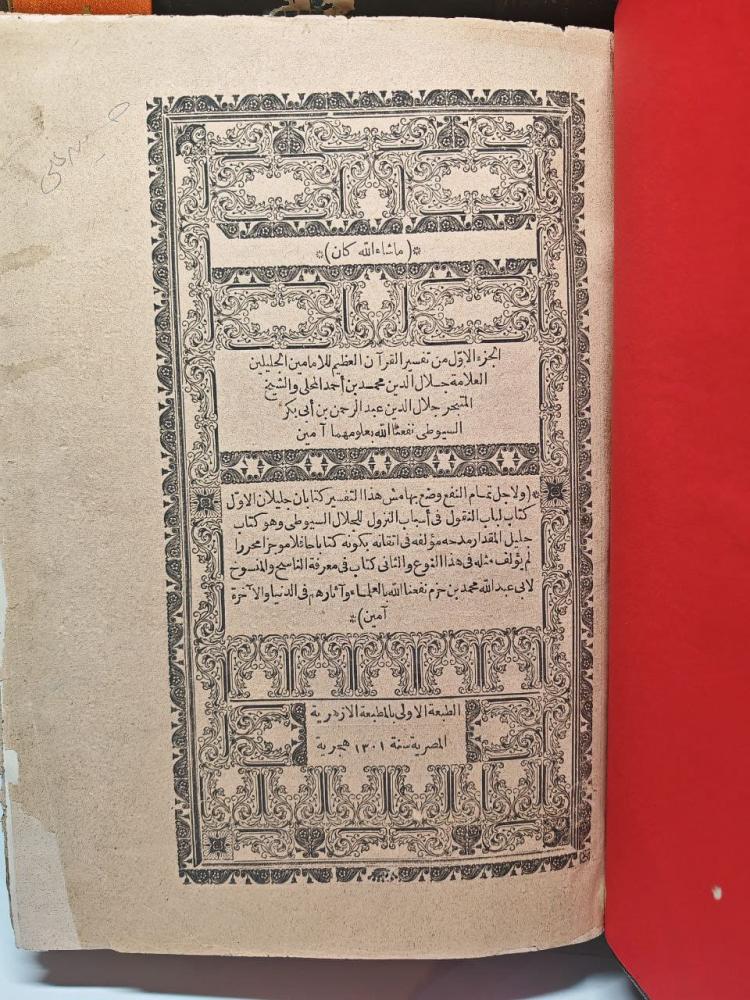 *(ماشاء الله كان)*
الجزء الاوّل من تفسير القرآن العظيم للامامين الجليلين
العلامة جلال الدين محمد بن أحمد المحلى والشيخ
المتبحر جلال الدين عبد الرحمن بن أبى بكر
السيوطى نفعنا الله بعلومهما آمين
*(ولاجل تمام النفع وضع بهامش هذا التفسير كتابان جليلان الاوّل
كتاب لباب النقول فى أسباب النزول للجلال السيوطى وهو كتاب
جليل المقدار مدحه مؤلفه فى اتقانه بكونه كتابا حافلا موجزا محررا
لم يؤلف مثله فى هذا النوع والثانى كتاب فى معرفة الناسخ والمنسوخ
لابى عبد الله محمد بن حزم نفعنا الله بالعلماء وآثارهم فى الدنيا والآخرة
آمين)*
الطبعة الاولى بالمطبعة الازهرية
المصرية سنة ١٣٠١ هجرية